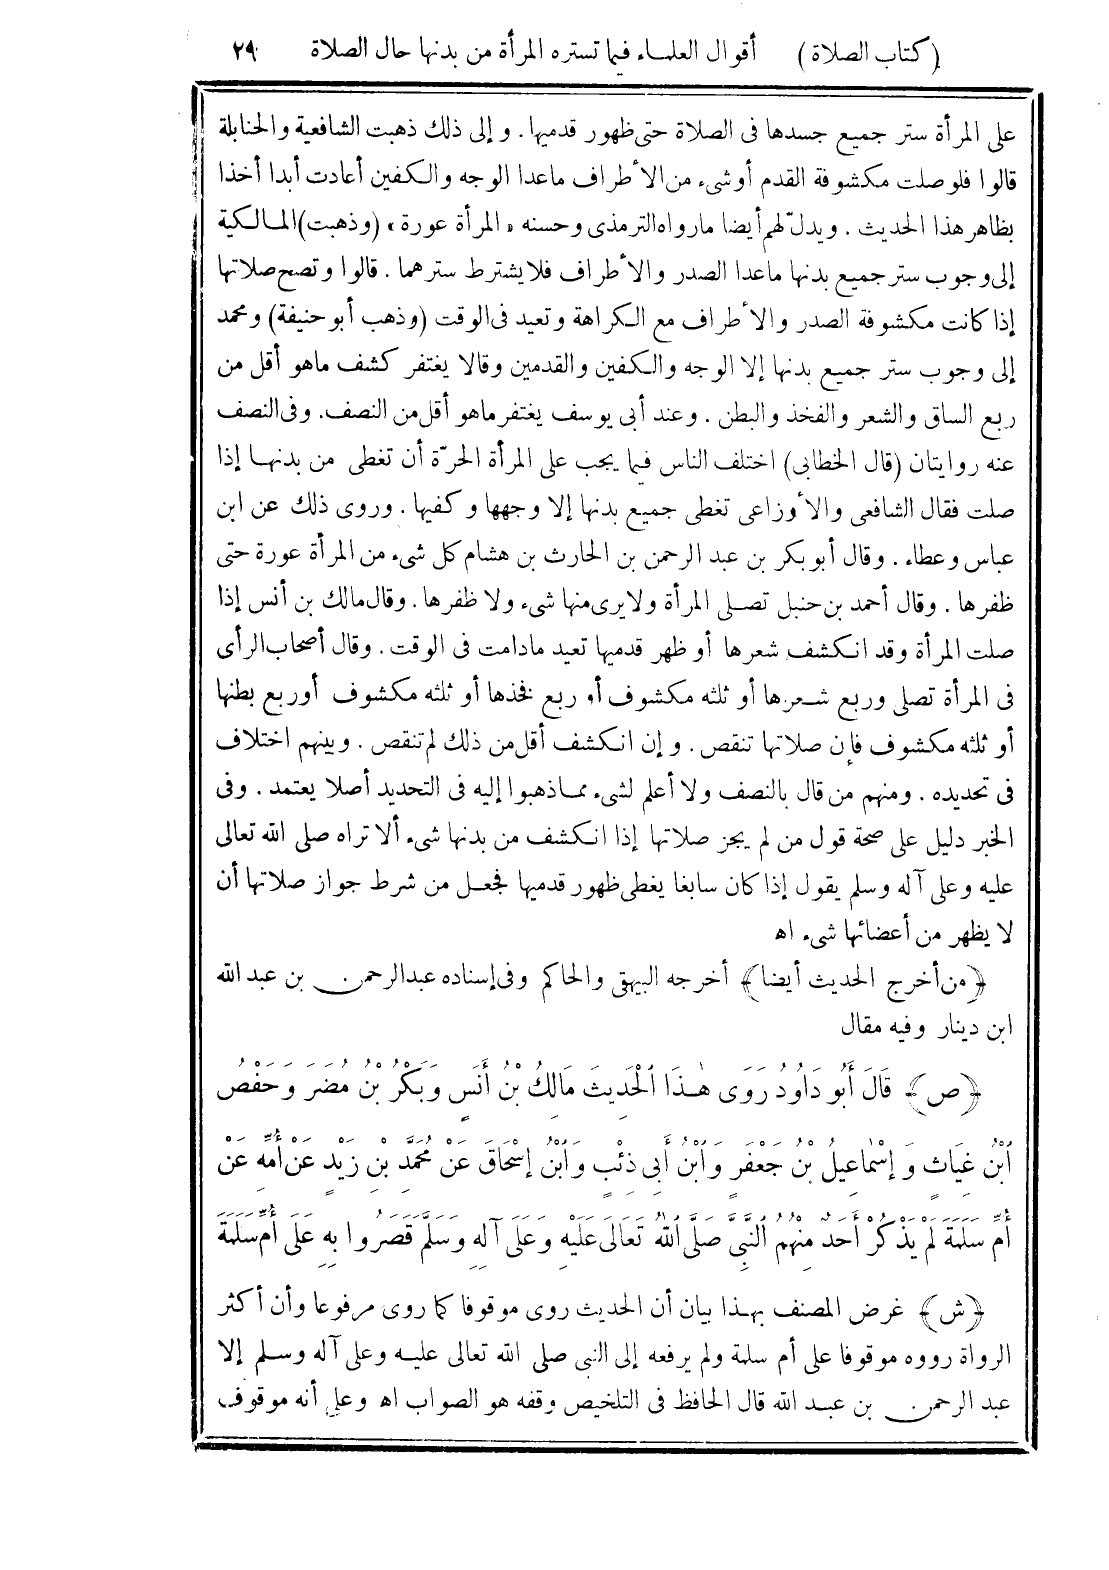 (كتاب الصلاة) أقوال العلماء فيما تستره المرأة من بدنها حال الصلاة ٢٩
على المرأة ستر جميع جسدها فى الصلاة حتى ظهور قدميها . وإلى ذلك ذهبت الشافعية والحنابلة
قالوا فلو صلت مكشوفة القدم أو شىء من الأطراف ماعدا الوجه والكفين أعادت أبدا أخذا
بظاهر هذا الحديث . ويدلّ لهم أيضا مارواه الترمذى وحسنه «المرأة عورة» (وذهبت) المالكية
إلى وجوب ستر جميع بدنها ماعدا الصدر والأطراف فلا يشترط سترهما . قالوا وتصح صلاتها
إذا كانت مكشوفة الصدر والأطراف مع الكراهة وتعيد فى الوقت (وذهب أبو حنيفة) ومحمد
إلى وجوب ستر جميع بدنها إلا الوجه والكفين والقدمين وقالا يغتفر كشف ماهو أقل من
ربع الساق والشعر والفخذ والبطن . وعند أبى يوسف يغتفر ماهو أقل من النصف. وفى النصف
عنه روايتان (قال الخطابى) اختلف الناس فيما يجب على المرأة الحرّة أن تغطى من بدنها إذا
صلت فقال الشافعى والأوزاعى تغطى جميع بدنها إلا وجهها وكفيها . وروى ذلك عن ابن
عباس وعطاء . وقال أبو بكر بن عبد الرحمن بن الحارث بن هشام كل شىء من المرأة عورة حتى
ظفرها . وقال أحمد بن حنبل تصلى المرأة ولا يرى منها شىء ولا ظفرها . وقال مالك بن أنس إذا
صلت المرأة وقد انكشف شعرها أو ظهر قدميها تعيد مادامت فى الوقت . وقال أصحاب الرأى
فى المرأة تصلى وربع شعرها أو ثلثه مكشوف أو ربع فخذها أو ثلثه مكشوف أو ربع بطنها
أو ثلثه مكشوف فإن صلاتها تنقص . وإن انكشف أقل من ذلك لم تنقص . وبينهم اختلاف
فى تحديده . ومنهم من قال بالنصف ولا أعلم لشىء مما ذهبوا إليه فى التحديد أصلا يعتمد . وفى
الخبر دليل على صحة قول من لم يجز صلاتها إذا انكشف من بدنها شىء ألا تراه صلى الله تعالى
عليه وعلى آله وسلم يقول إذا كان سابغا يغطى ظهور قدميها فجعل من شرط جواز صلاتها أن
لا يظهر من أعضائها شىء اه
﴿من أخرج الحديث أيضا﴾ أخرجه البيهقى والحاكم وفى إسناده عبد الرحمن بن عبد الله
ابن دينار وفيه مقال
﴿ص﴾ قَالَ أَبُو دَاوُدَ رَوَى هٰذَا الْحَدِيثَ مَالِكُ بْنُ أَنَسٍ وَبَكْرُ بْنُ مُضَرَ وَحَفْصُ
ابْنُ غِيَاثٍ وَإِسْمَاعِيلُ بْنُ جَعْفَرٍ وَابْنُ أَبِى ذِئْبٍ وَابْنُ إِسْحَاقَ عَنْ مُحَمَّدِ بْنِ زَيْدٍ عَنْ أُمِّهِ عَنْ
أُمِّ سَلَمَةَ لَمْ يَذْكُرْ أَحَدٌ مِنْهُمُ النَّبِىَّ صَلَّى اللهُ تَعَالَى عَلَيْهِ وَعَلَى آلِهِ وَسَلَّمَ قَصَرُوا بِهِ عَلَى أُمِّ سَلَمَةَ
﴿ش﴾ غرض المصنف بهذا بيان أن الحديث روى موقوفا كما روى مرفوعا وأن أكثر
الرواة رووه موقوفا على أم سلمة ولم يرفعه إلى النبى صلى الله تعالى عليه وعلى آله وسلم إلا
عبد الرحمن بن عبد الله قال الحافظ فى التلخيص وقفه هو الصواب اه وعلى أنه موقوف